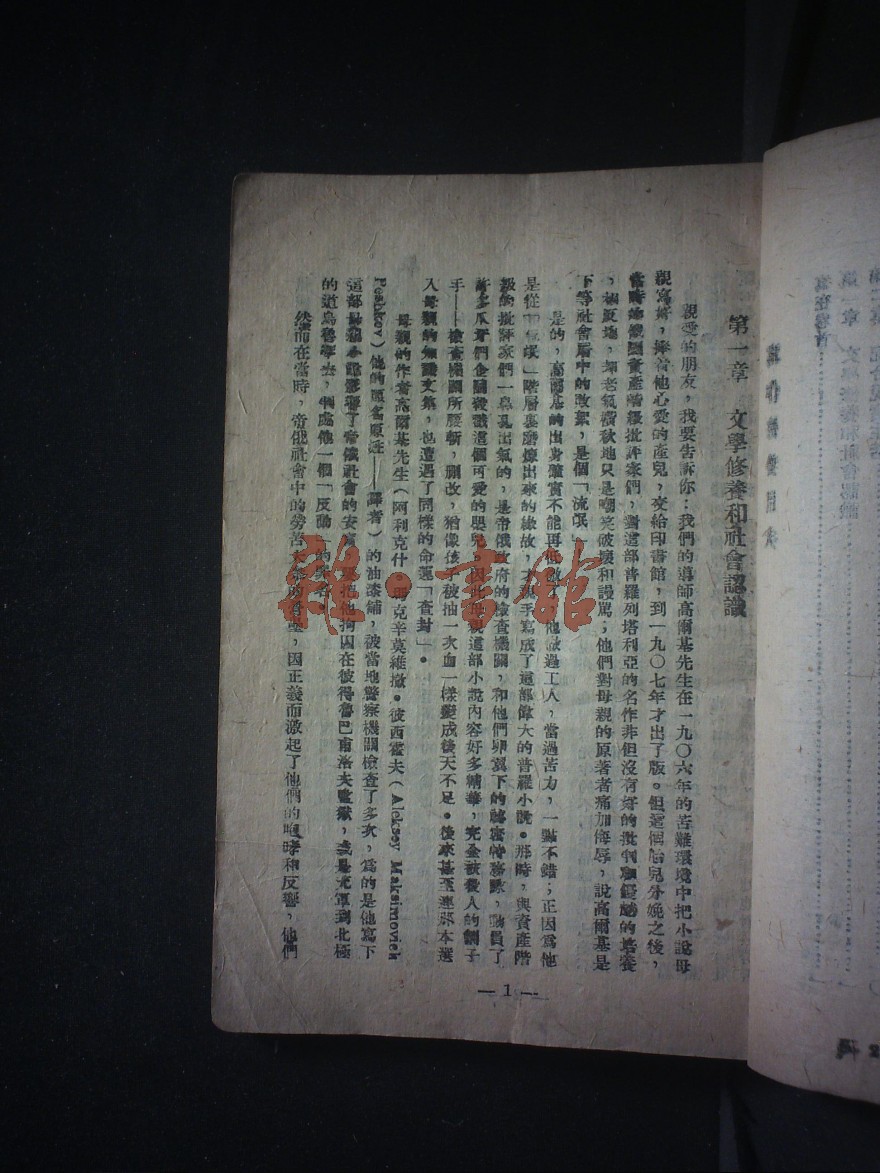 第一章　文學修養和社會認識
親愛的朋友，我要告訴你：我們的導師高爾基先生在一九〇六年的苦難環境中把小說母
親寫好，捧着他心愛的產兒，交給印書館，到一九〇七年才出了版。但這個胎兒分娩之後，
當時的俄國資產階級批評家們，對這部普羅列塔利亞的名作非但沒有好的批判和
，相反地，却老氣橫秋地只是嘲笑破壞和謾罵；他們對母親的原著者痛加侮辱，說高爾基是
下等社會層中的敗絮，是個「流氓」
是的，高爾基的出身雖實不能再低微了，他做過工人，當過苦力，一點不錯；正因爲他
是從「流氓」階層裏磨煉出來的緣故，才親手寫成了這部偉大的普羅小說。那時，與資產階
級的批評家們一鼻孔出氣的，是帝俄政府的檢查機關，和他們卵翼下的秘密特務隊，動員了
許多爪牙們企圖殺戮這個可愛的嬰兒，因此母親這部小說內容好多精華，完全被殺人的劊子
手——檢查機關所腰斬，删改，猶像孩子被抽一次血一樣變成後天不足。後來甚至連那本選
入母親的知識文集，也遭遇了同樣的命運「查封」。
母親的作者高爾基先生（阿利克什·馬克辛莫維撒·彼西霍夫（Aleksey Maksimovich
Peshkov）他的原名原姓——譯者）的油漆鋪，被當地警察機關檢查了多次，爲的是他寫下
這部了帝俄社會的安寧，要把他拘囚在彼得魯巴甫洛夫監獄，或是充軍到北極
的道烏魯，判處他一個「反動」的罪名
然而在當時，帝俄社會中的勞苦大衆的，因正義而激起了他們的咆哮和反響，他們
—1—
雜·書館